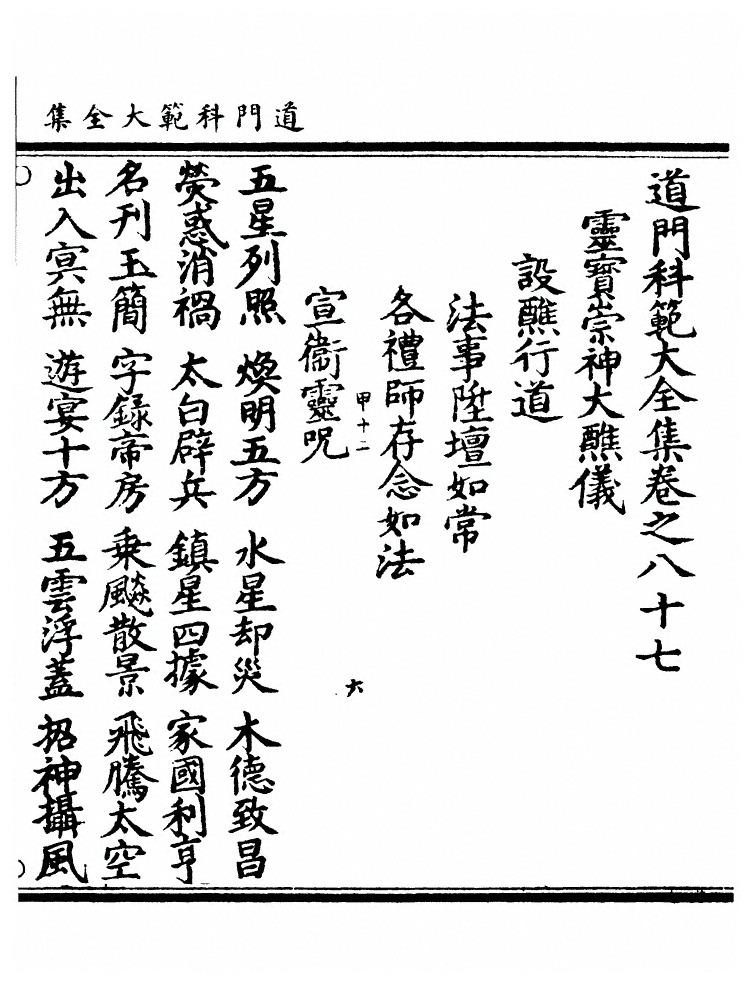 道門科範大全集
道門科範大全集卷之八十七
靈寶崇神大醮儀
設醮行道
法事陞壇如常
各禮師存念如法
甲十二
六
宣衞靈呪
五星列照 煥明五方 水星却災 木德致昌
熒惑消禍 太白辟兵 鎮星四據 家國利亨
名刊玉簡 字錄帝房 乗飈散景 飛騰太空
出入冥無 遊宴十方 五雲浮蓋 招神攝風